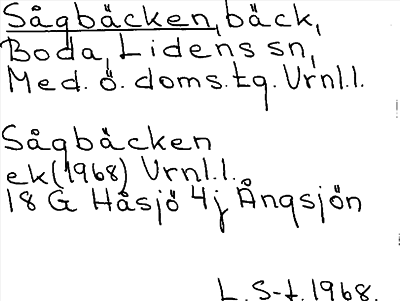 Sågbäcken, bäck,
Boda, Lidens sn,
Med. ö. doms. tg. Vrnl.l.
Sågbäcken
ek (1968) Vrnl.l.
18 G Håsjö 4j Ångsjön
L. S-t. 1968.